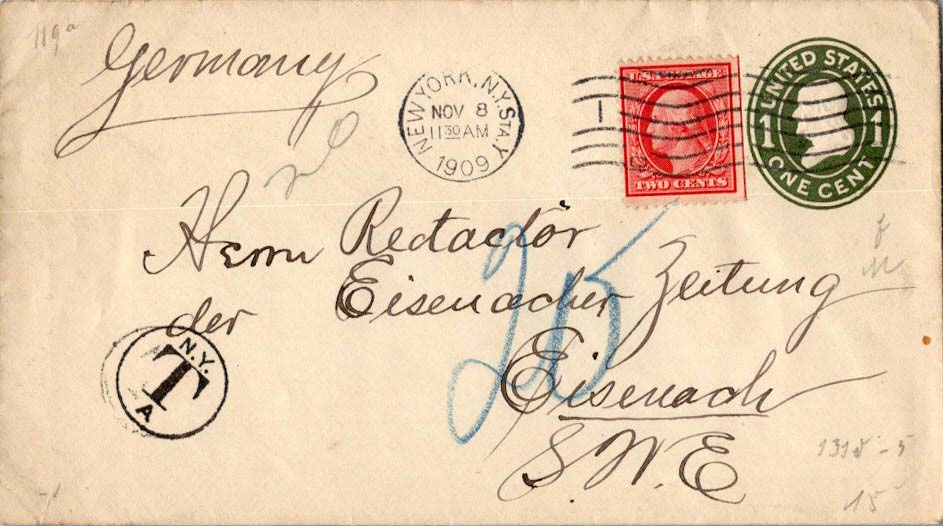 119a
Germany
NEW YORK, N.Y. STA. Y
NOV 8
11 30 AM
1909
1
U.S. POSTAGE
TWO CENTS
UNITED STATES
1 1
ONE CENT
Herrn Redactör
der Eisenacher Zeitung
25
Eisenach
S.W.E
N.Y.
T
A
15